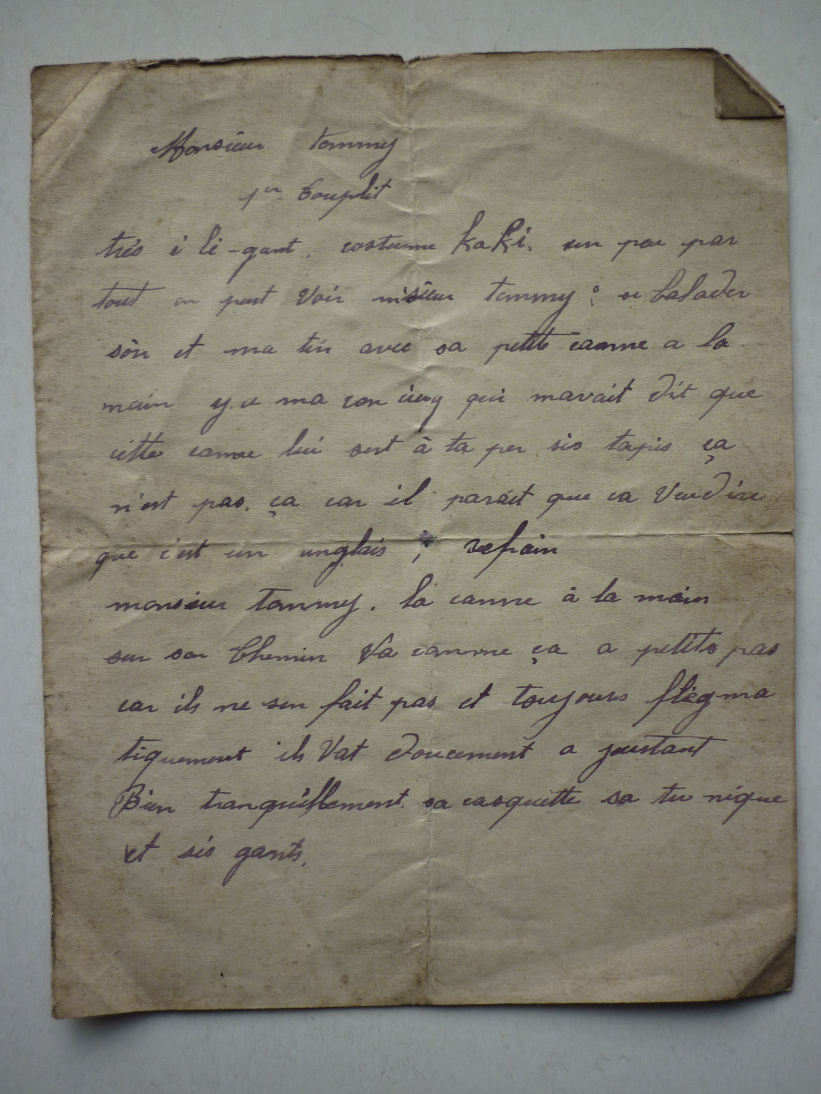 Monsieur tommy
1er Couplet
très é lé-gant, costume kaki, un peu par
tout on peut Voir m'sieur tommy; se balader
soir et ma tin avec sa petite canne a la
main y.a ma con cierg qui mavait dit que
cette canne lui sert à ta per ses tapis ça
n'est pas. ça car il parait que ca Veudire
que c'est un anglais ; refrain
monsieur Tommy. la canne à la main
sur son Chemin Va comme ça a petits pas
car ils ne sen fait pas et toujours flègma
tiquement ils Vat doucement a justant
Bien tranquillement sa casquette sa tu nique
et ses gants,